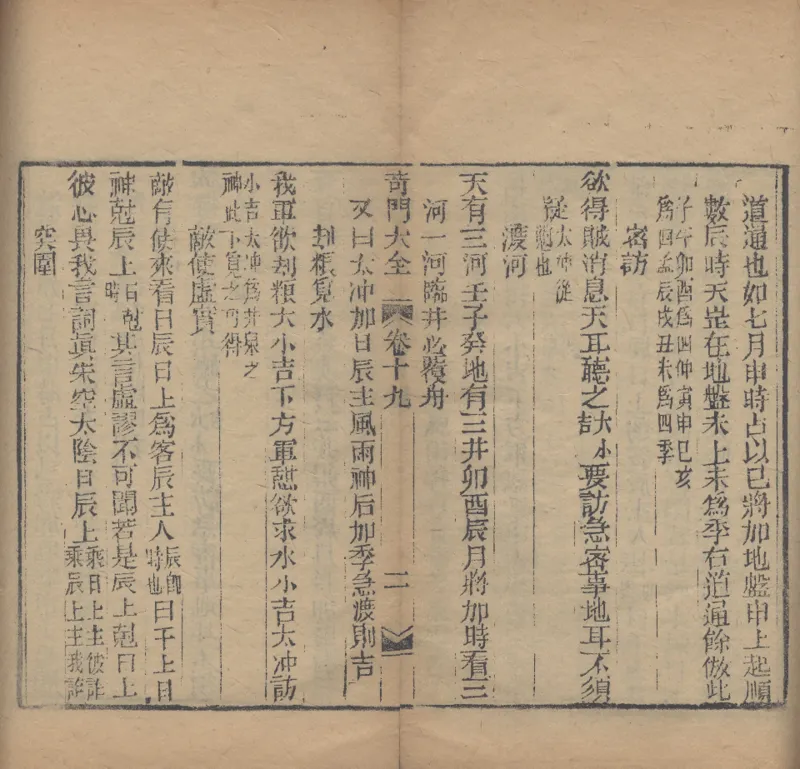 道通也如七月申時占以巳將加地盤申上起順
數辰時天罡在地盤未上未為季右道通餘倣此
子午卯酉為四仲寅申巳亥
為四孟辰戌丑未為四季
密訪
欲得賊消息天耳聽之大吉小要訪急密事地耳不須
從太冲從
魁也
渡河
天有三河壬子癸地有三井卯酉辰月將加時看三
河一河臨井必覆舟
奇門大全 卷十九 二
又曰太冲加日辰主風雨神后加季急渡則吉
刦粮覓水
我軍欲刦粮大小吉下方軍憇欲求水小吉太冲訪
小吉太冲為井泉之
神此下覓之可得
敵使虛實
敵有使來看日辰日上為客辰主人辰即時也日干上目
神尅辰上日尅時其言虛謬不可聞若是辰上尅日上
彼心畏我言詞眞朱空太陰日辰上乘日上主彼詐乘辰上主我詐
突圍